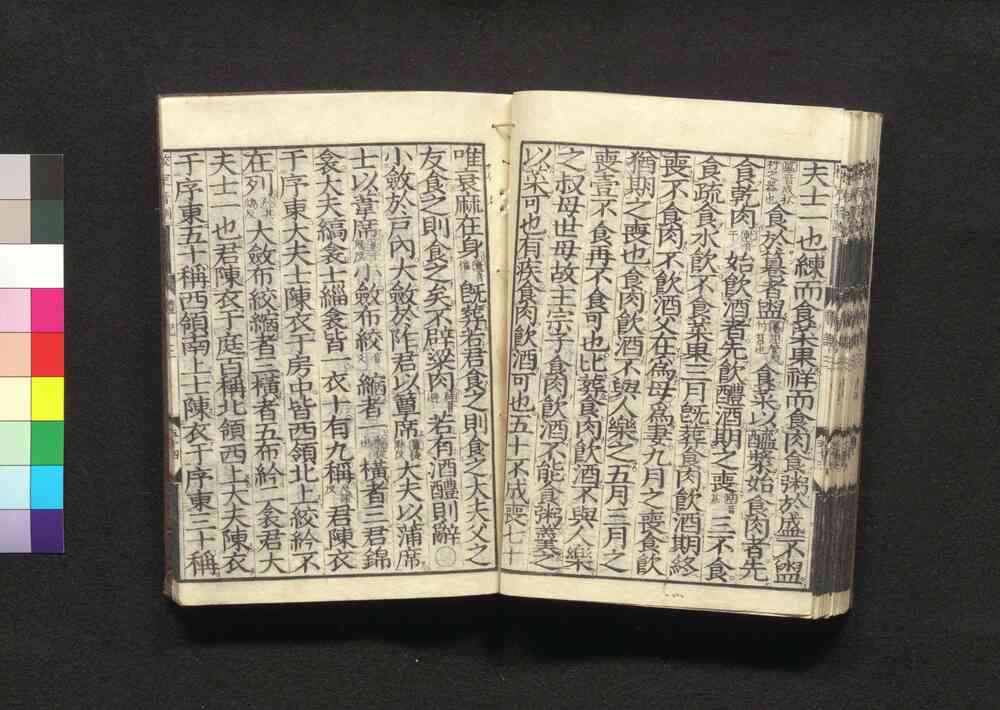 夫士一也練而食菜果祥而食肉食粥於盛不盥
食於篹者盥食菜以醯醬始食肉者先
食乾肉始飲酒者先飲醴酒期之喪三不食
食疏食水飲不食菜果三月既葬食肉飲酒期終
喪不食肉不飲酒父在爲母爲妻九月之喪食飲
猶期之喪也食肉飲酒不與人樂之五月三月之
喪壹不食再不食可也比葬食肉飲酒不與人樂
之叔母世母故主宗子食肉飲酒不能食粥羹之
以菜可也有疾食肉飲酒可也五十不成喪七十
唯衰麻在身既葬若君食之則食之大夫父之
友食之則食之矣不辟粱肉若有酒醴則辭
小斂於戶內大斂於阼君以簟席大夫以蒲席
士以葦席小斂布絞縮者一橫者三君錦
衾大夫縞衾士緇衾皆一衣十有九稱君陳衣
于序東大夫士陳衣于房中皆西領北上絞紟不
在列大斂布絞縮者三橫者五布紟二衾君大
夫士一也君陳衣于庭百稱北領西上大夫陳衣
于序東五十稱西領南上士陳衣于序東三十稱